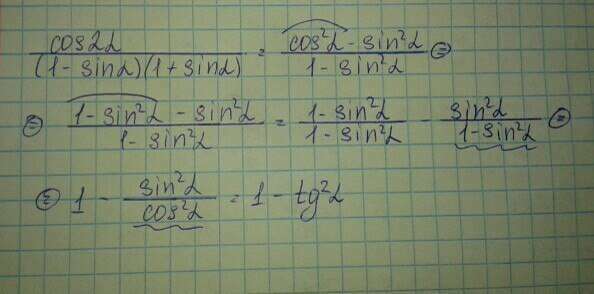 cos2α / (1 - sinα)(1 + sinα) = cos²α - sin²α / 1 - sin²α =
= 1 - sin²α - sin²α / 1 - sin²α = 1 - sin²α / 1 - sin²α - sin²α / 1 - sin²α =
= 1 - sin²α / cos²α = 1 - tg²α